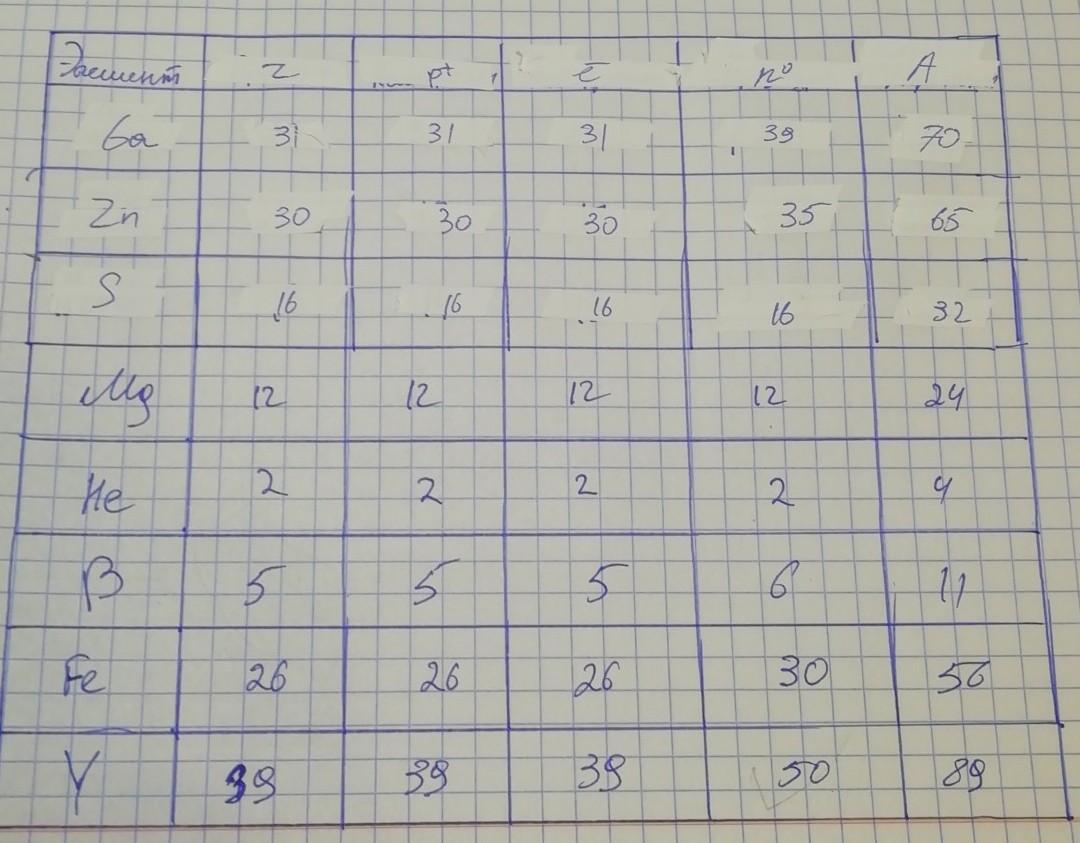 Элемент Z p+ ē n⁰ A
Ga 31 31 31 39 70
Zn 30 30 30 35 65
S 16 16 16 16 32
Mg 12 12 12 12 24
He 2 2 2 2 4
B 5 5 5 6 11
Fe 26 26 26 30 56
Y 39 39 39 50 89